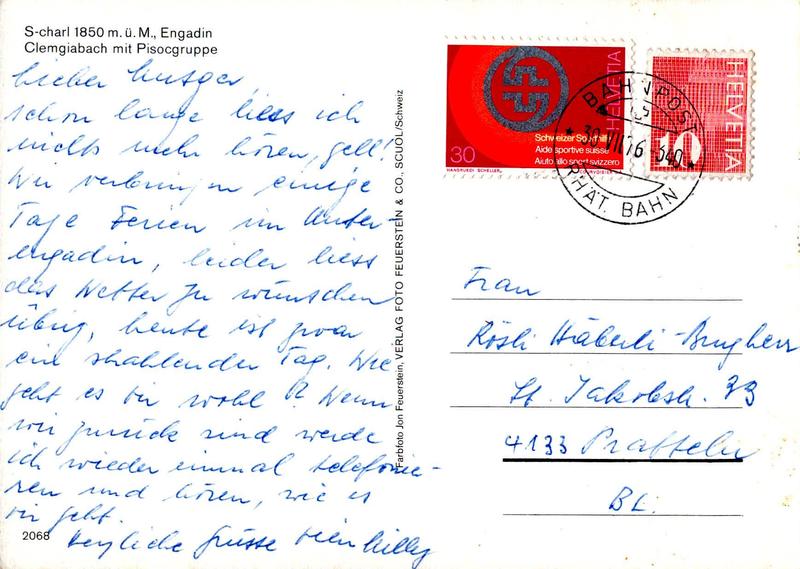 S-charl 1850 m. ü. M., Engadin
Clemgiabach mit Pisocgruppe
Lieber
schon lange liess ich
nichts mehr hören, gell!
Wir verbringen einige
Tage Ferien im Unter-
engadin, leider liess
das Wetter zu wünschen
übrig, heute ist zwar
ein strahlender Tag. Wie
geht es Dir wohl? Wenn
wir zurück sind werde
ich wieder einmal telefonie-
ren und hören, wie es
Dir geht.
Herzliche Grüsse Dein Willy
2068
Farbfoto Jon Feuerstein, VERLAG FOTO FEUERSTEIN & CO., SCUOL/Schweiz
HELVETIA
Schweizer Sporthilfe
Aide sportive suisse
Aiuto allo sport svizzero
30
HANGRUEDI SCHELLER
COURVOISIER
HELVETIA
10
BAHNPOST
30.VII.76-340
RHÄT. BAHN
Frau
Rösli Häberli-Brugherr
St. Jakobstr. 33
4133 Pratteln
BL.